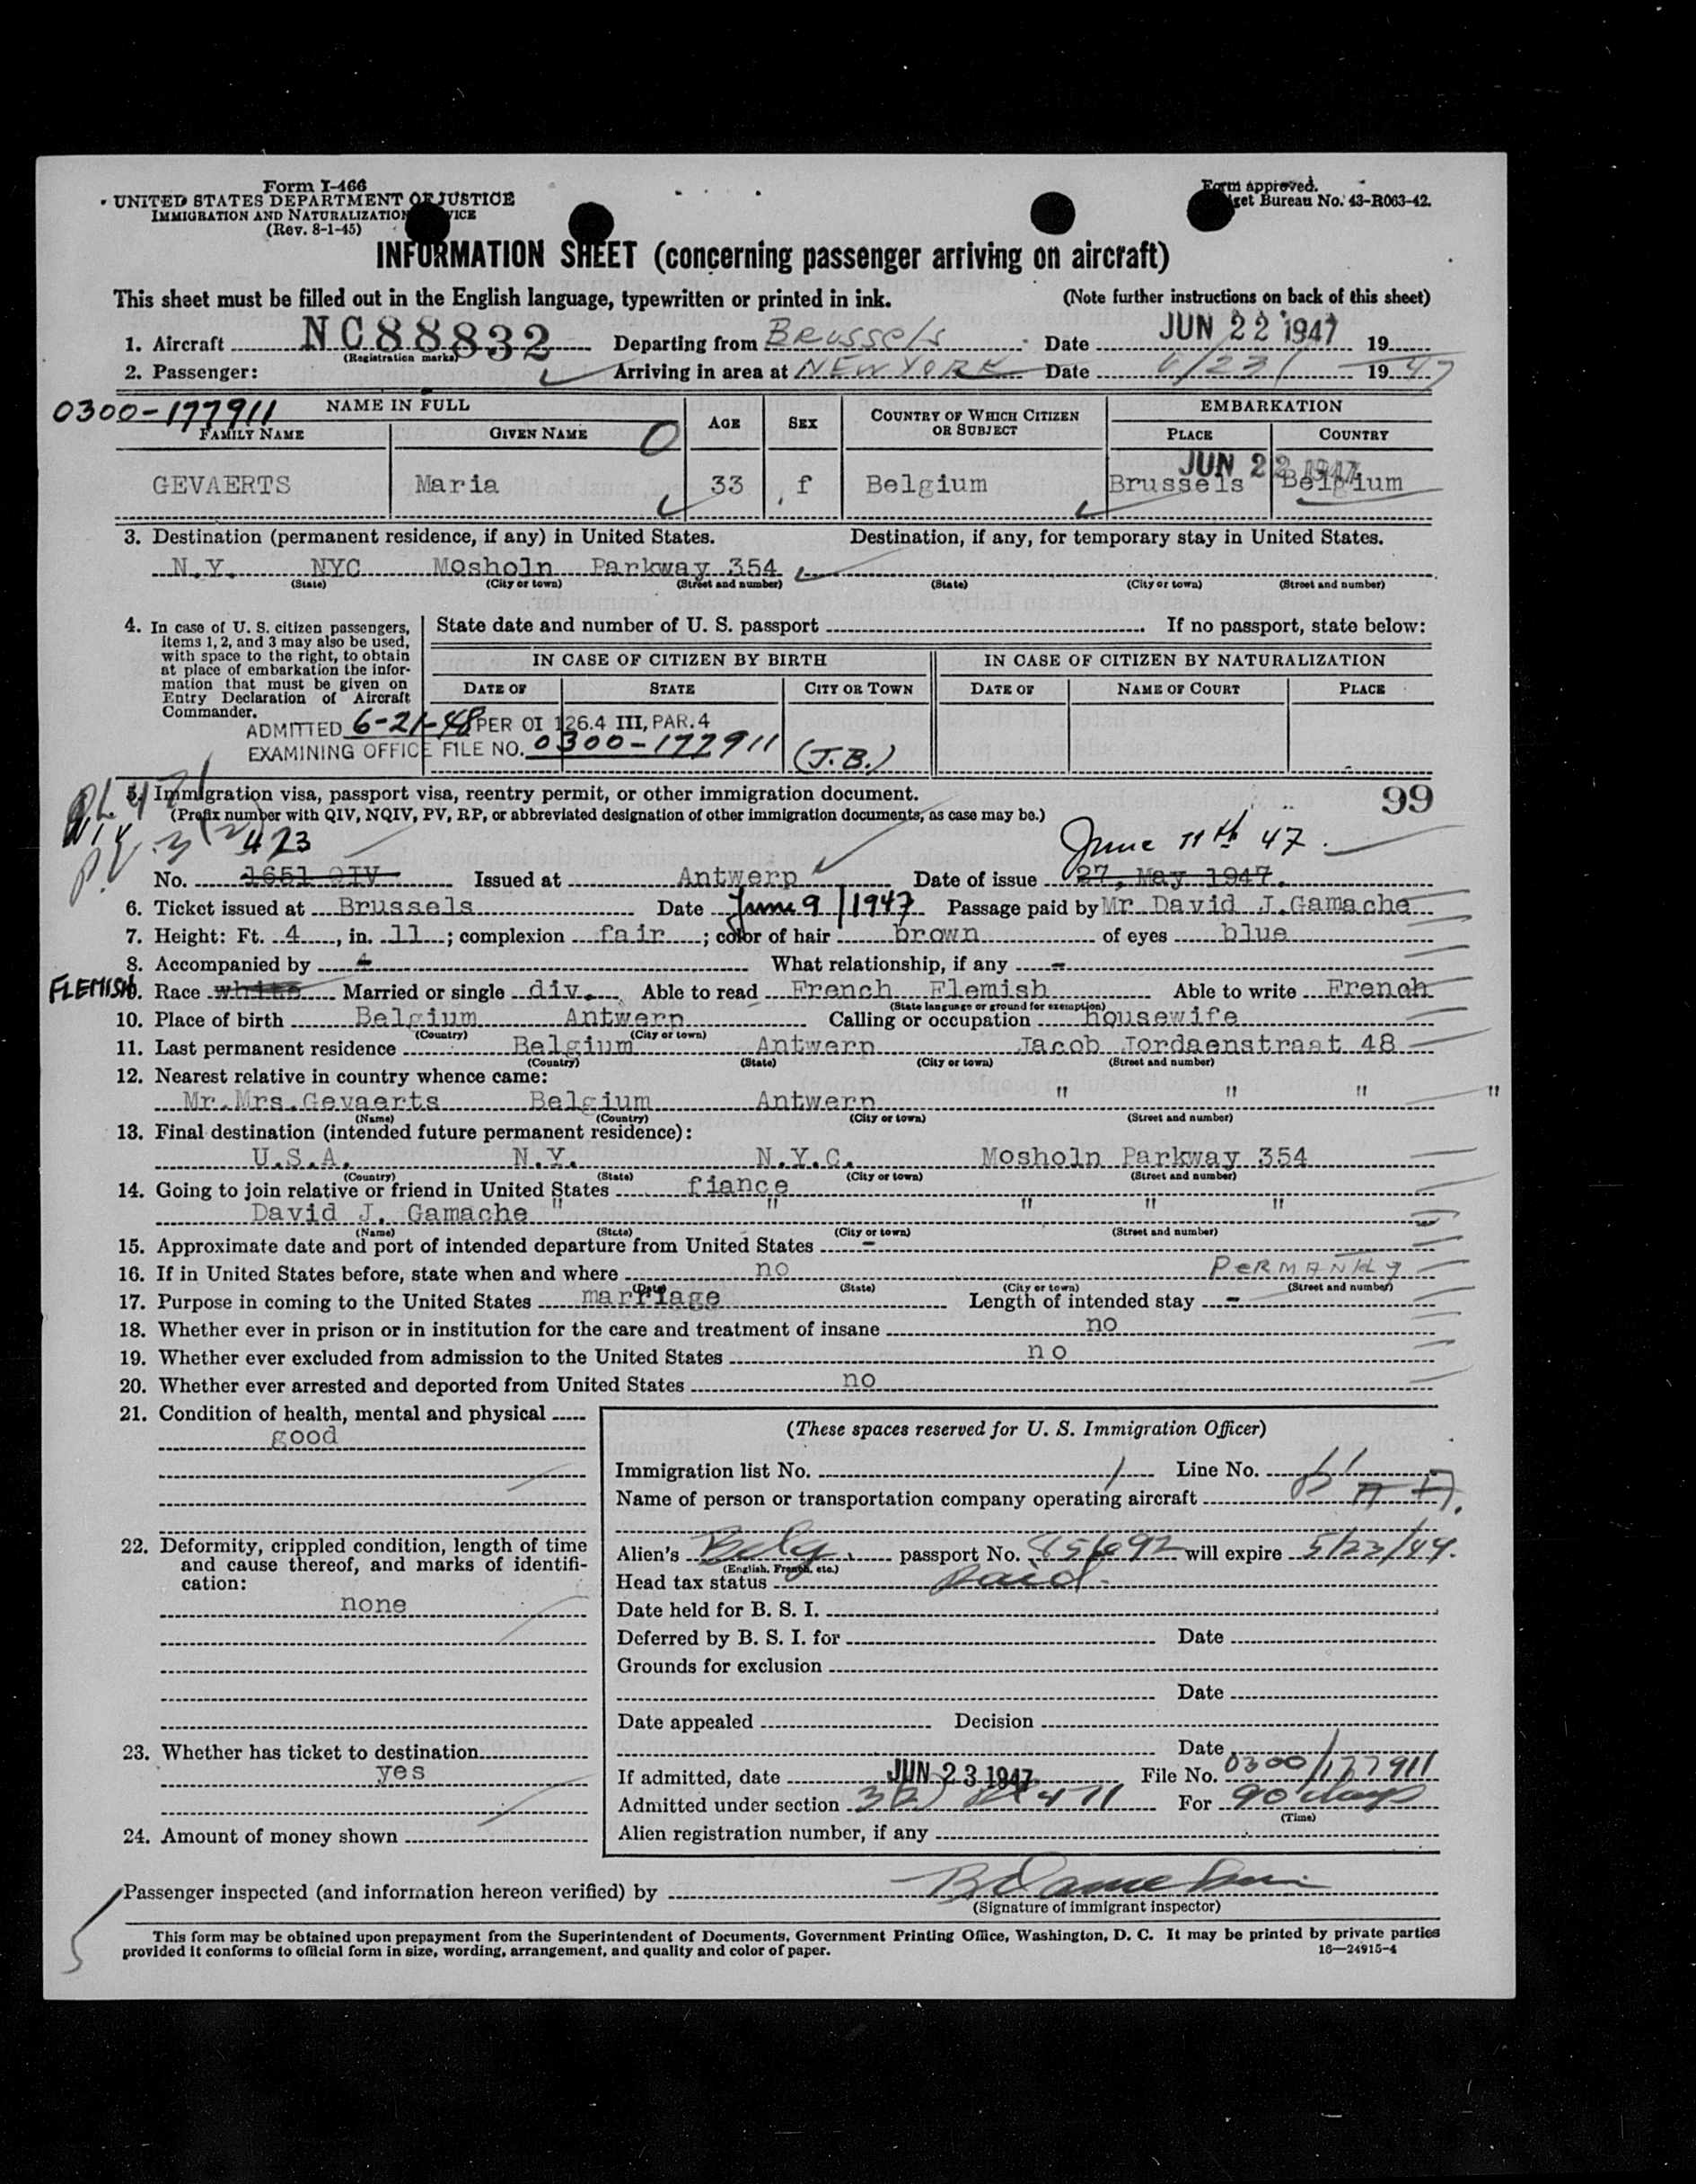 Form I-466
UNITED STATES DEPARTMENT OF JUSTICE
IMMIGRATION AND NATURALIZATION VICE
(Rev. 8-1-45)
Form approved.
get Bureau No. 43-R063-42.
INFORMATION SHEET (concerning passenger arriving on aircraft)
This sheet must be filled out in the English language, typewritten or printed in ink. (Note further instructions on back of this sheet)
1. Aircraft NC88832 Departing from Brussels Date JUN 22 1947 19
(Registration marks)
2. Passenger: Arriving in area at NEW YORK Date 6/23/ 1947
0300-177911 NAME IN FULL AGE SEX COUNTRY OF WHICH CITIZEN OR SUBJECT EMBARKATION
FAMILY NAME GIVEN NAME PLACE COUNTRY
JUN 22 1947
GEVAERTS Maria 33 f Belgium Brussels Belgium
3. Destination (permanent residence, if any) in United States. Destination, if any, for temporary stay in United States.
N.Y. NYC Mosholn Parkway 354
(State) (City or town) (Street and number) (State) (City or town) (Street and number)
4. In case of U. S. citizen passengers, items 1, 2, and 3 may also be used, with space to the right, to obtain at place of embarkation the information that must be given on Entry Declaration of Aircraft Commander.
State date and number of U. S. passport If no passport, state below:
IN CASE OF CITIZEN BY BIRTH IN CASE OF CITIZEN BY NATURALIZATION
DATE OF STATE CITY OR TOWN DATE OF NAME OF COURT PLACE
ADMITTED 6-21-48 PER OI 126.4 III, PAR. 4
EXAMINING OFFICE FILE NO. 0300-177911 (J.B.)
5. Immigration visa, passport visa, reentry permit, or other immigration document. 99
(Prefix number with QIV, NQIV, PV, RP, or abbreviated designation of other immigration documents, as case may be.)
423 June 11th 47.
No. 1651 QIV Issued at Antwerp Date of issue 27, May 1947.
6. Ticket issued at Brussels Date June 9 1947 Passage paid by Mr David J.Gamache
7. Height: Ft. 4, in. 11; complexion fair; color of hair brown of eyes blue
8. Accompanied by What relationship, if any -
FLEMISH 9. Race white Married or single div. Able to read French Flemish Able to write French
(State language or ground for exemption)
10. Place of birth Belgium Antwerp Calling or occupation housewife
(Country) (City or town)
11. Last permanent residence Belgium Antwerp Jacob Jordaenstraat 48
(Country) (State) (City or town) (Street and number)
12. Nearest relative in country whence came:
Mr.Mrs.Gevaerts Belgium Antwerp " " " "
(Name) (Country) (City or town) (Street and number)
13. Final destination (intended future permanent residence):
U.S.A. N.Y. N.Y.C. Mosholn Parkway 354
(Country) (State) (City or town) (Street and number)
14. Going to join relative or friend in United States fiance
David J. Gamache " " " " "
(Name) (State) (City or town) (Street and number)
15. Approximate date and port of intended departure from United States -
16. If in United States before, state when and where no PERMANTLY
(Date) (State) (City or town) (Street and number)
17. Purpose in coming to the United States marriage Length of intended stay -
18. Whether ever in prison or in institution for the care and treatment of insane no
19. Whether ever excluded from admission to the United States no
20. Whether ever arrested and deported from United States no
21. Condition of health, mental and physical
good
22. Deformity, crippled condition, length of time and cause thereof, and marks of identification:
none
23. Whether has ticket to destination
yes
24. Amount of money shown
(These spaces reserved for U. S. Immigration Officer)
Immigration list No. 1 Line No. 11
Name of person or transportation company operating aircraft
Alien's Belg. passport No. 856692 will expire 5/23/49.
(English, French, etc.)
Head tax status paid
Date held for B. S. I.
Deferred by B. S. I. for Date
Grounds for exclusion
Date
Date appealed Decision
Date
If admitted, date JUN 23 1947 File No. 0300/177911
Admitted under section 3(2) PL 471 For 90 days
(Time)
Alien registration number, if any
Passenger inspected (and information hereon verified) by
(Signature of immigrant inspector)
This form may be obtained upon prepayment from the Superintendent of Documents, Government Printing Office, Washington, D. C. It may be printed by private parties
provided it conforms to official form in size, wording, arrangement, and quality and color of paper. 16—24915-4